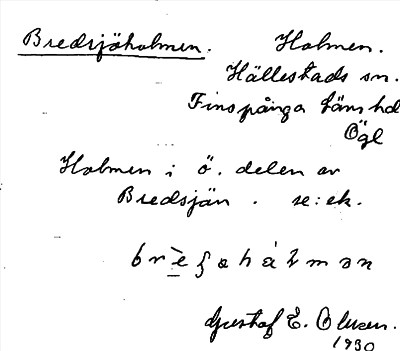 Bredsjöholmen. Holmen.
Hällestads sn.
Finspånga läns hd
Ögl
Holmen i ö. delen av
Bredsjön. se: ek.
Gustaf E.
1930